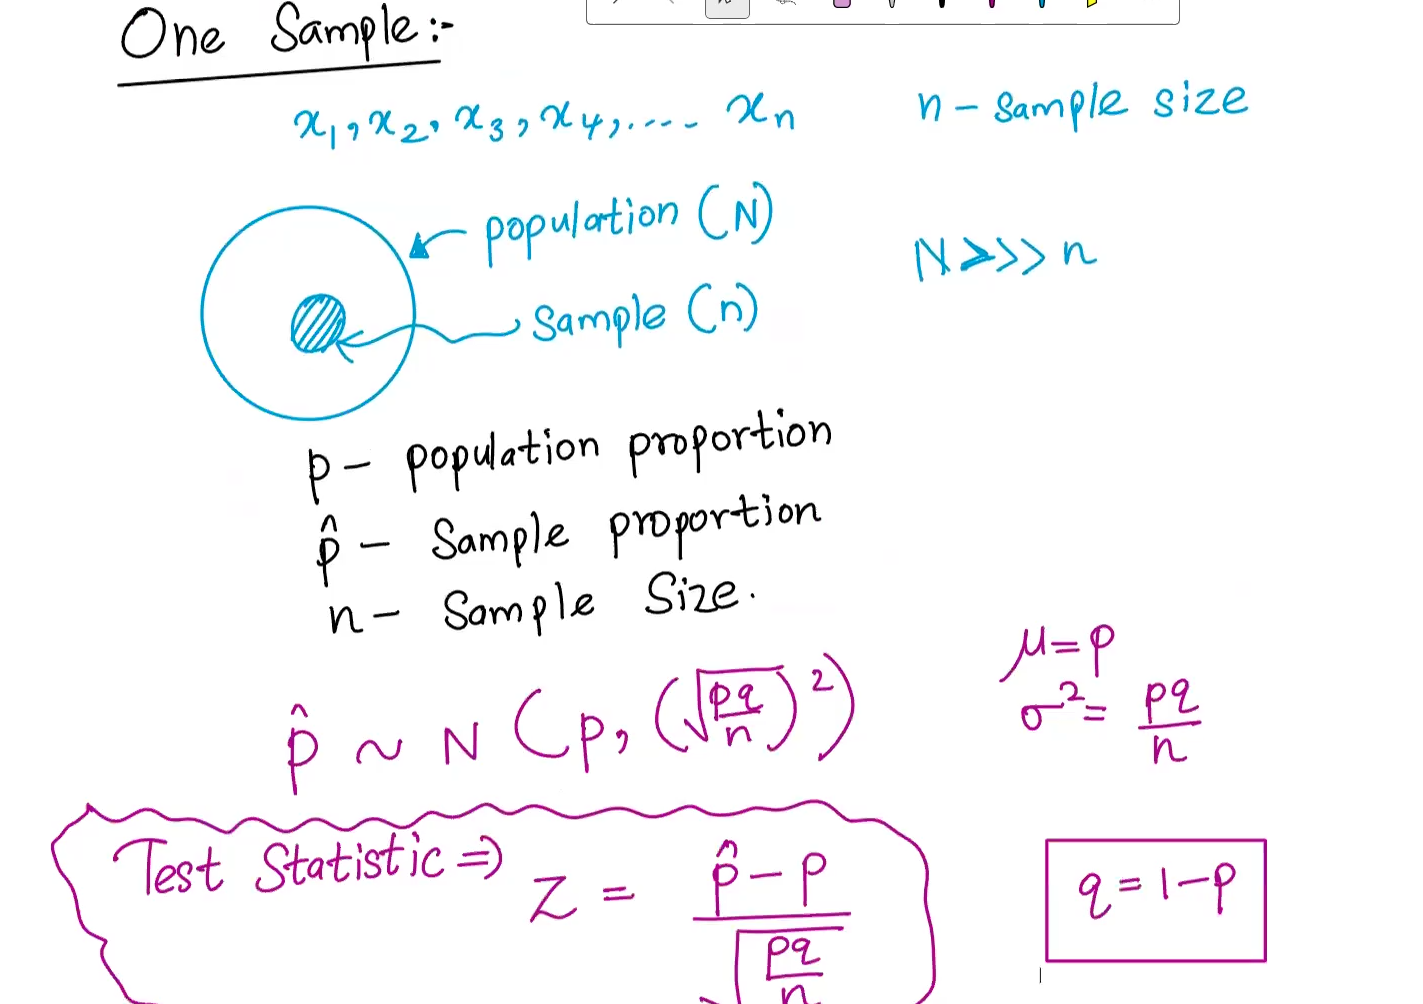 One Sample:-
x₁, x₂, x₃, x₄, .... xₙ n - Sample size
population (N)
N >>> n
Sample (n)
p - population proportion
p̂ - Sample proportion
n - Sample Size.
μ = p
p̂ ~ N (p, (√(pq/n))²)
σ² = pq/n
Test Statistic ⇒ Z = (p̂ - p) / √(pq/n)
q = 1 - p